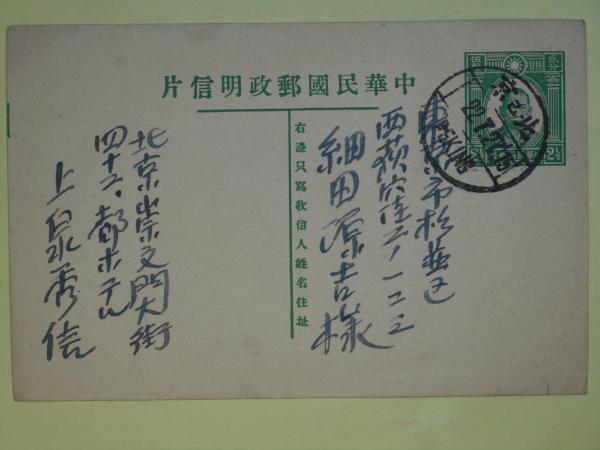 片信明政郵國民華中
貳分
伍
2½
2½
東京市杉並区
西荻窪二ノ一二三
細田源吉様
右邊只寫收信人姓名住址
北京崇文門大街
四十二、都ホテル
上泉秀信